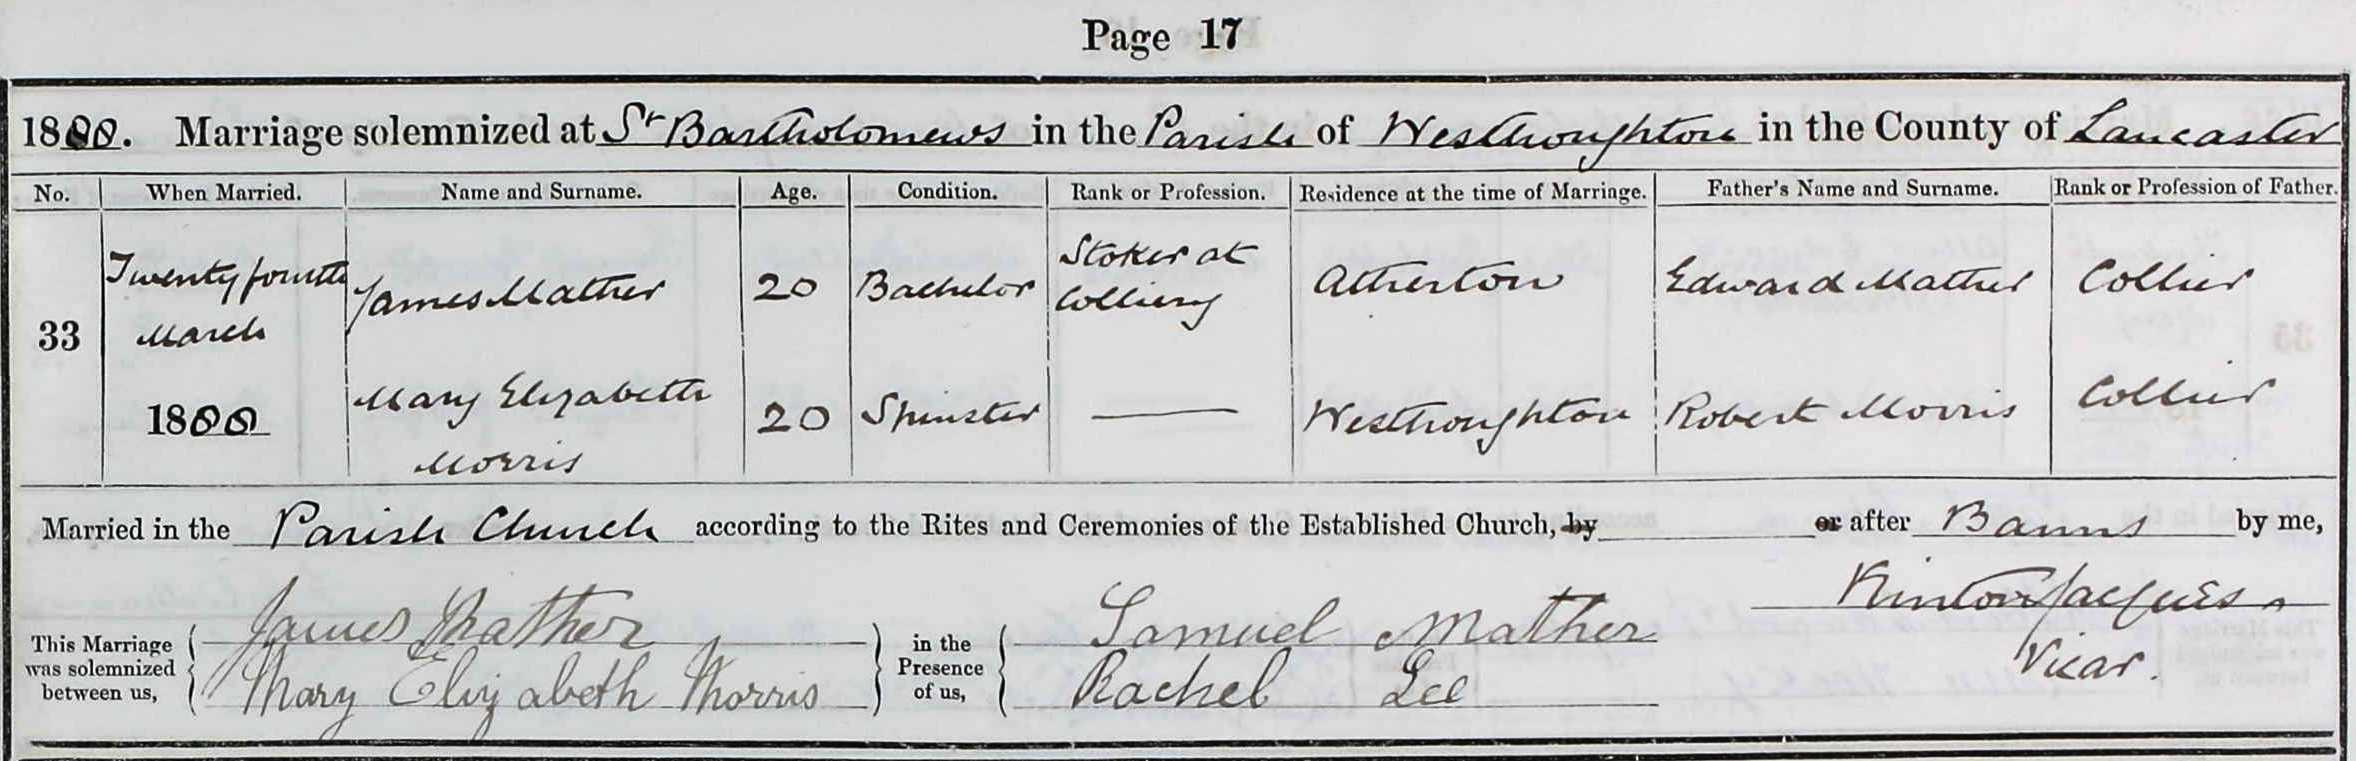 Page 17
1888. Marriage solemnized at St Bartholomews in the Parish of Westhoughton in the County of Lancaster
No. When Married. Name and Surname. Age. Condition. Rank or Profession. Residence at the time of Marriage. Father's Name and Surname. Rank or Profession of Father.
33 Twenty fourth March 1888 James Mather 20 Bachelor Stoker at Colliery Atherton Edward Mather Collier
Mary Elizabeth Morris 20 Spinster Westhoughton Robert Morris Collier
Married in the Parish Church according to the Rites and Ceremonies of the Established Church, by or after Banns by me,
This Marriage was solemnized between us, James Mather in the Presence of us, Samuel Mather Kinton Jacques
Mary Elizabeth Morris Rachel Lee Vicar.